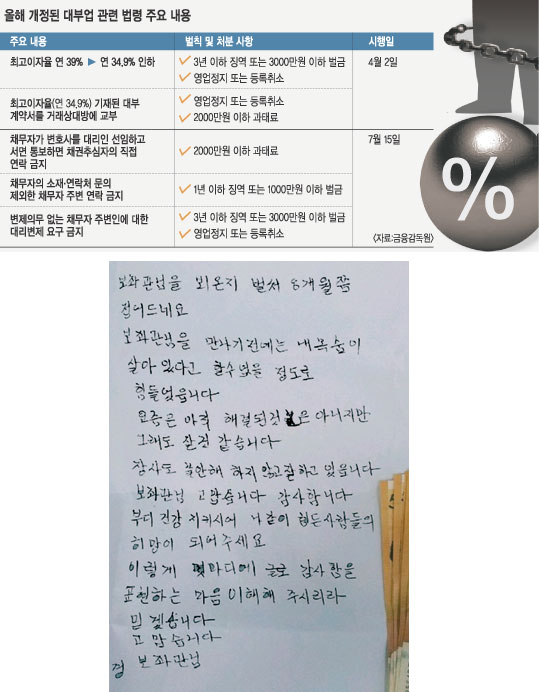 올해 개정된 대부업 관련 법령 주요 내용
주요 내용 벌칙 및 처분 사항 시행일
최고이자율 연 39% ▶ 연 34.9% 인하
✓ 3년 이하 징역 또는 3000만원 이하 벌금
✓ 영업정지 또는 등록취소
4월 2일
최고이자율(연 34.9%) 기재된 대부
계약서를 거래상대방에 교부
✓ 영업정지 또는 등록취소
✓ 2000만원 이하 과태료
채무자가 변호사를 대리인 선임하고
서면 통보하면 채권추심자의 직접
연락 금지
✓ 2000만원 이하 과태료
7월 15일
채무자의 소재·연락처 문의
제외한 채무자 주변 연락 금지
✓ 1년 이하 징역 또는 1000만원 이하 벌금
변제의무 없는 채무자 주변인에 대한
대리변제 요구 금지
✓ 3년 이하 징역 또는 3000만원 이하 벌금
✓ 영업정지 또는 등록취소
〈자료:금융감독원〉
%
보좌관님을 뵈온지 벌써 8개월쯤
접어드네요
보좌관님을 만나기전에는 내목숨이
살아 있다고 할수없을 정도로
힘들었읍니다
요즘은 아직 해결된것 은 아니지만
그래도 살것 같습니다
장사도 불안해 하지 않고잘하고 있읍니다
보좌관님 고맙습니다 감사합니다
부디 건강 지키시어 나같이 힘든사람들의
희망이 되어주세요
이렇게 몇마디에 글로 감사함을
표현하는 마음 이해해 주시리라
믿겠습니다
고맙습니다
보좌관님